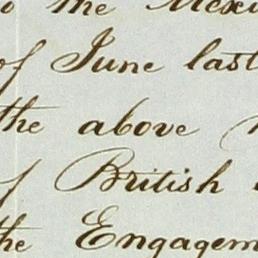 the Mexi
of June last
the above
of British
the Engagem